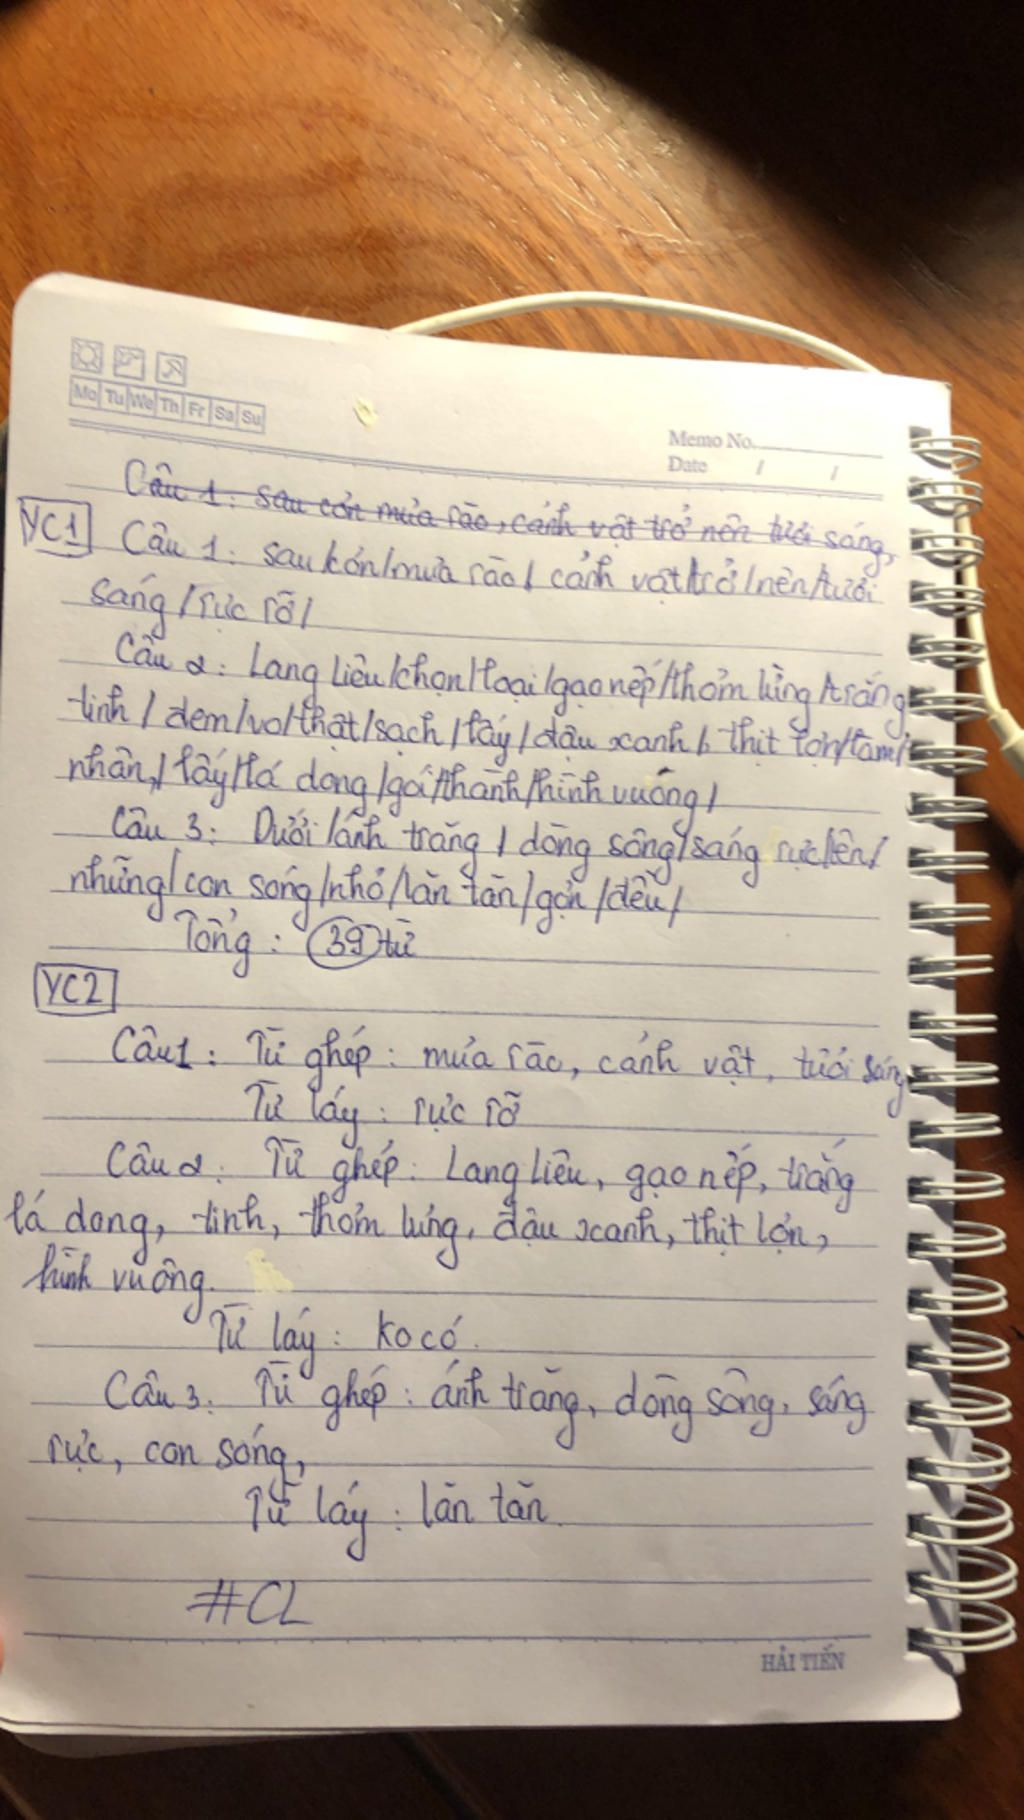 Mo Tu We Th Fr Sa Su
Memo No.
Date / /
Câu 1: sau cơn mưa rào, cảnh vật trở nên tươi sáng,
YC1 Câu 1: sau/cơn/mưa rào/ cảnh vật/trở/nên/tươi
sáng/rực rỡ/
Câu 2: Lang Liêu/chọn/loại/gạo nếp/thơm lừng/trắng
tinh/đem/vo/thật/sạch/lấy/đậu xanh/, thịt lợn/làm/
nhân,/lấy/lá dong/gói/thành/hình vuông/
Câu 3: Dưới/ánh trăng/dòng sông/sáng rực/lên/
những/con sóng/nhỏ/lăn tăn/gợn/đều/
Tổng: 39 từ
YC2
Câu 1: Từ ghép: mưa rào, cảnh vật, tươi sáng
Từ láy: rực rỡ
Câu 2: Từ ghép: Lang liêu, gạo nếp, trắng
lá dong, tinh, thơm lừng, đậu xanh, thịt lợn,
hình vuông.
Từ láy: ko có.
Câu 3: Từ ghép: ánh trăng, dòng sông, sáng
rực, con sóng,
Từ láy: lăn tăn.
#CL
HẢI TIẾN